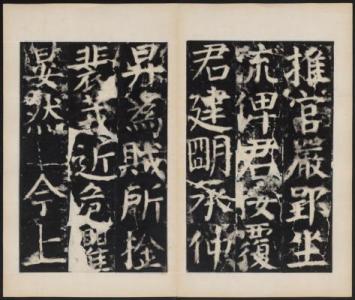 推官嚴郢坐
流俾君按覆
君建朙承仲
昇為賊所擒
裴茙近危懼
晏然今上